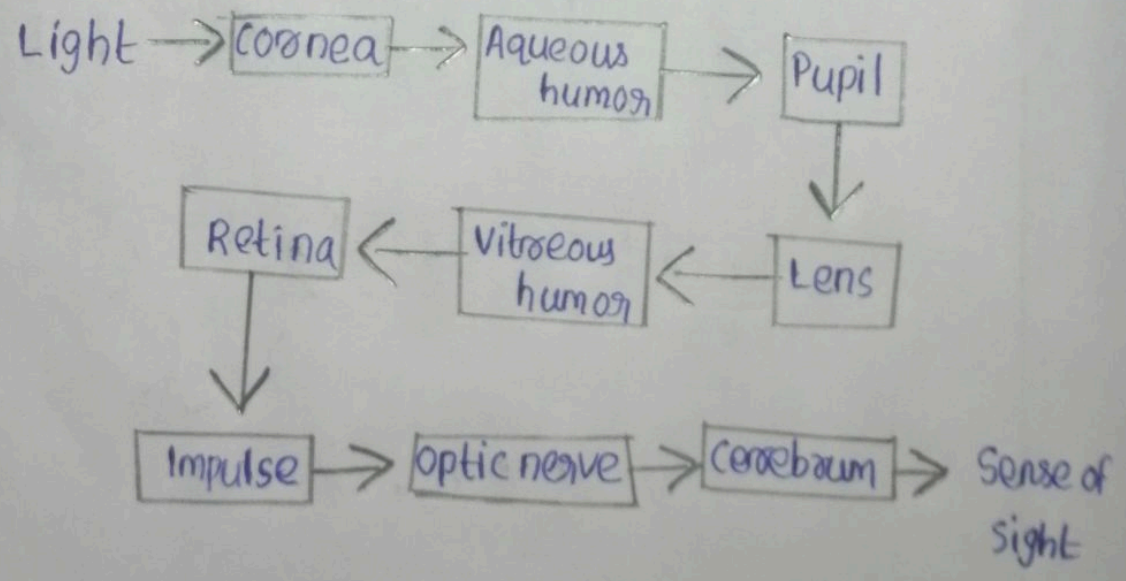 Light
Cornea
Aqueous
humor
Pupil
Lens
Vitreous
humor
Retina
Impulse
Optic nerve
Cerebrum
Sense of
sight